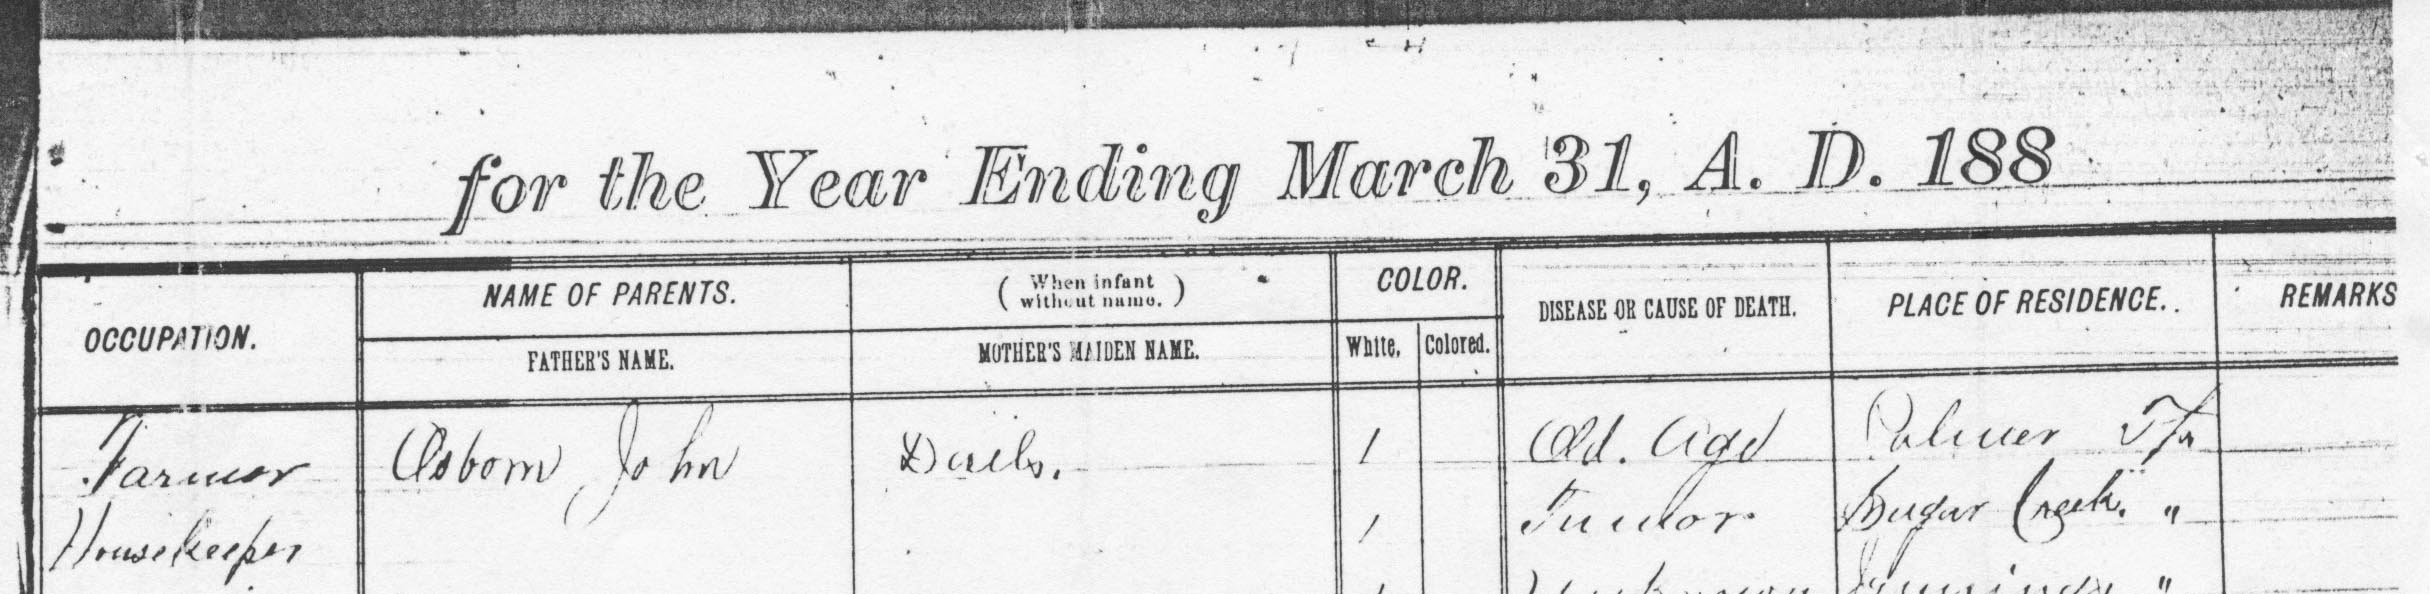 for the Year Ending March 31, A. D. 188
OCCUPATION. NAME OF PARENTS. ( When infant without name. ) COLOR. DISEASE OR CAUSE OF DEATH. PLACE OF RESIDENCE. REMARKS
FATHER'S NAME. MOTHER'S MAIDEN NAME. White. Colored.
Farmer Osborn John 1 Old. Age Palmer Tp
Housekeeper 1 Tumor Sugar Creek. "
Unknown Jennings "